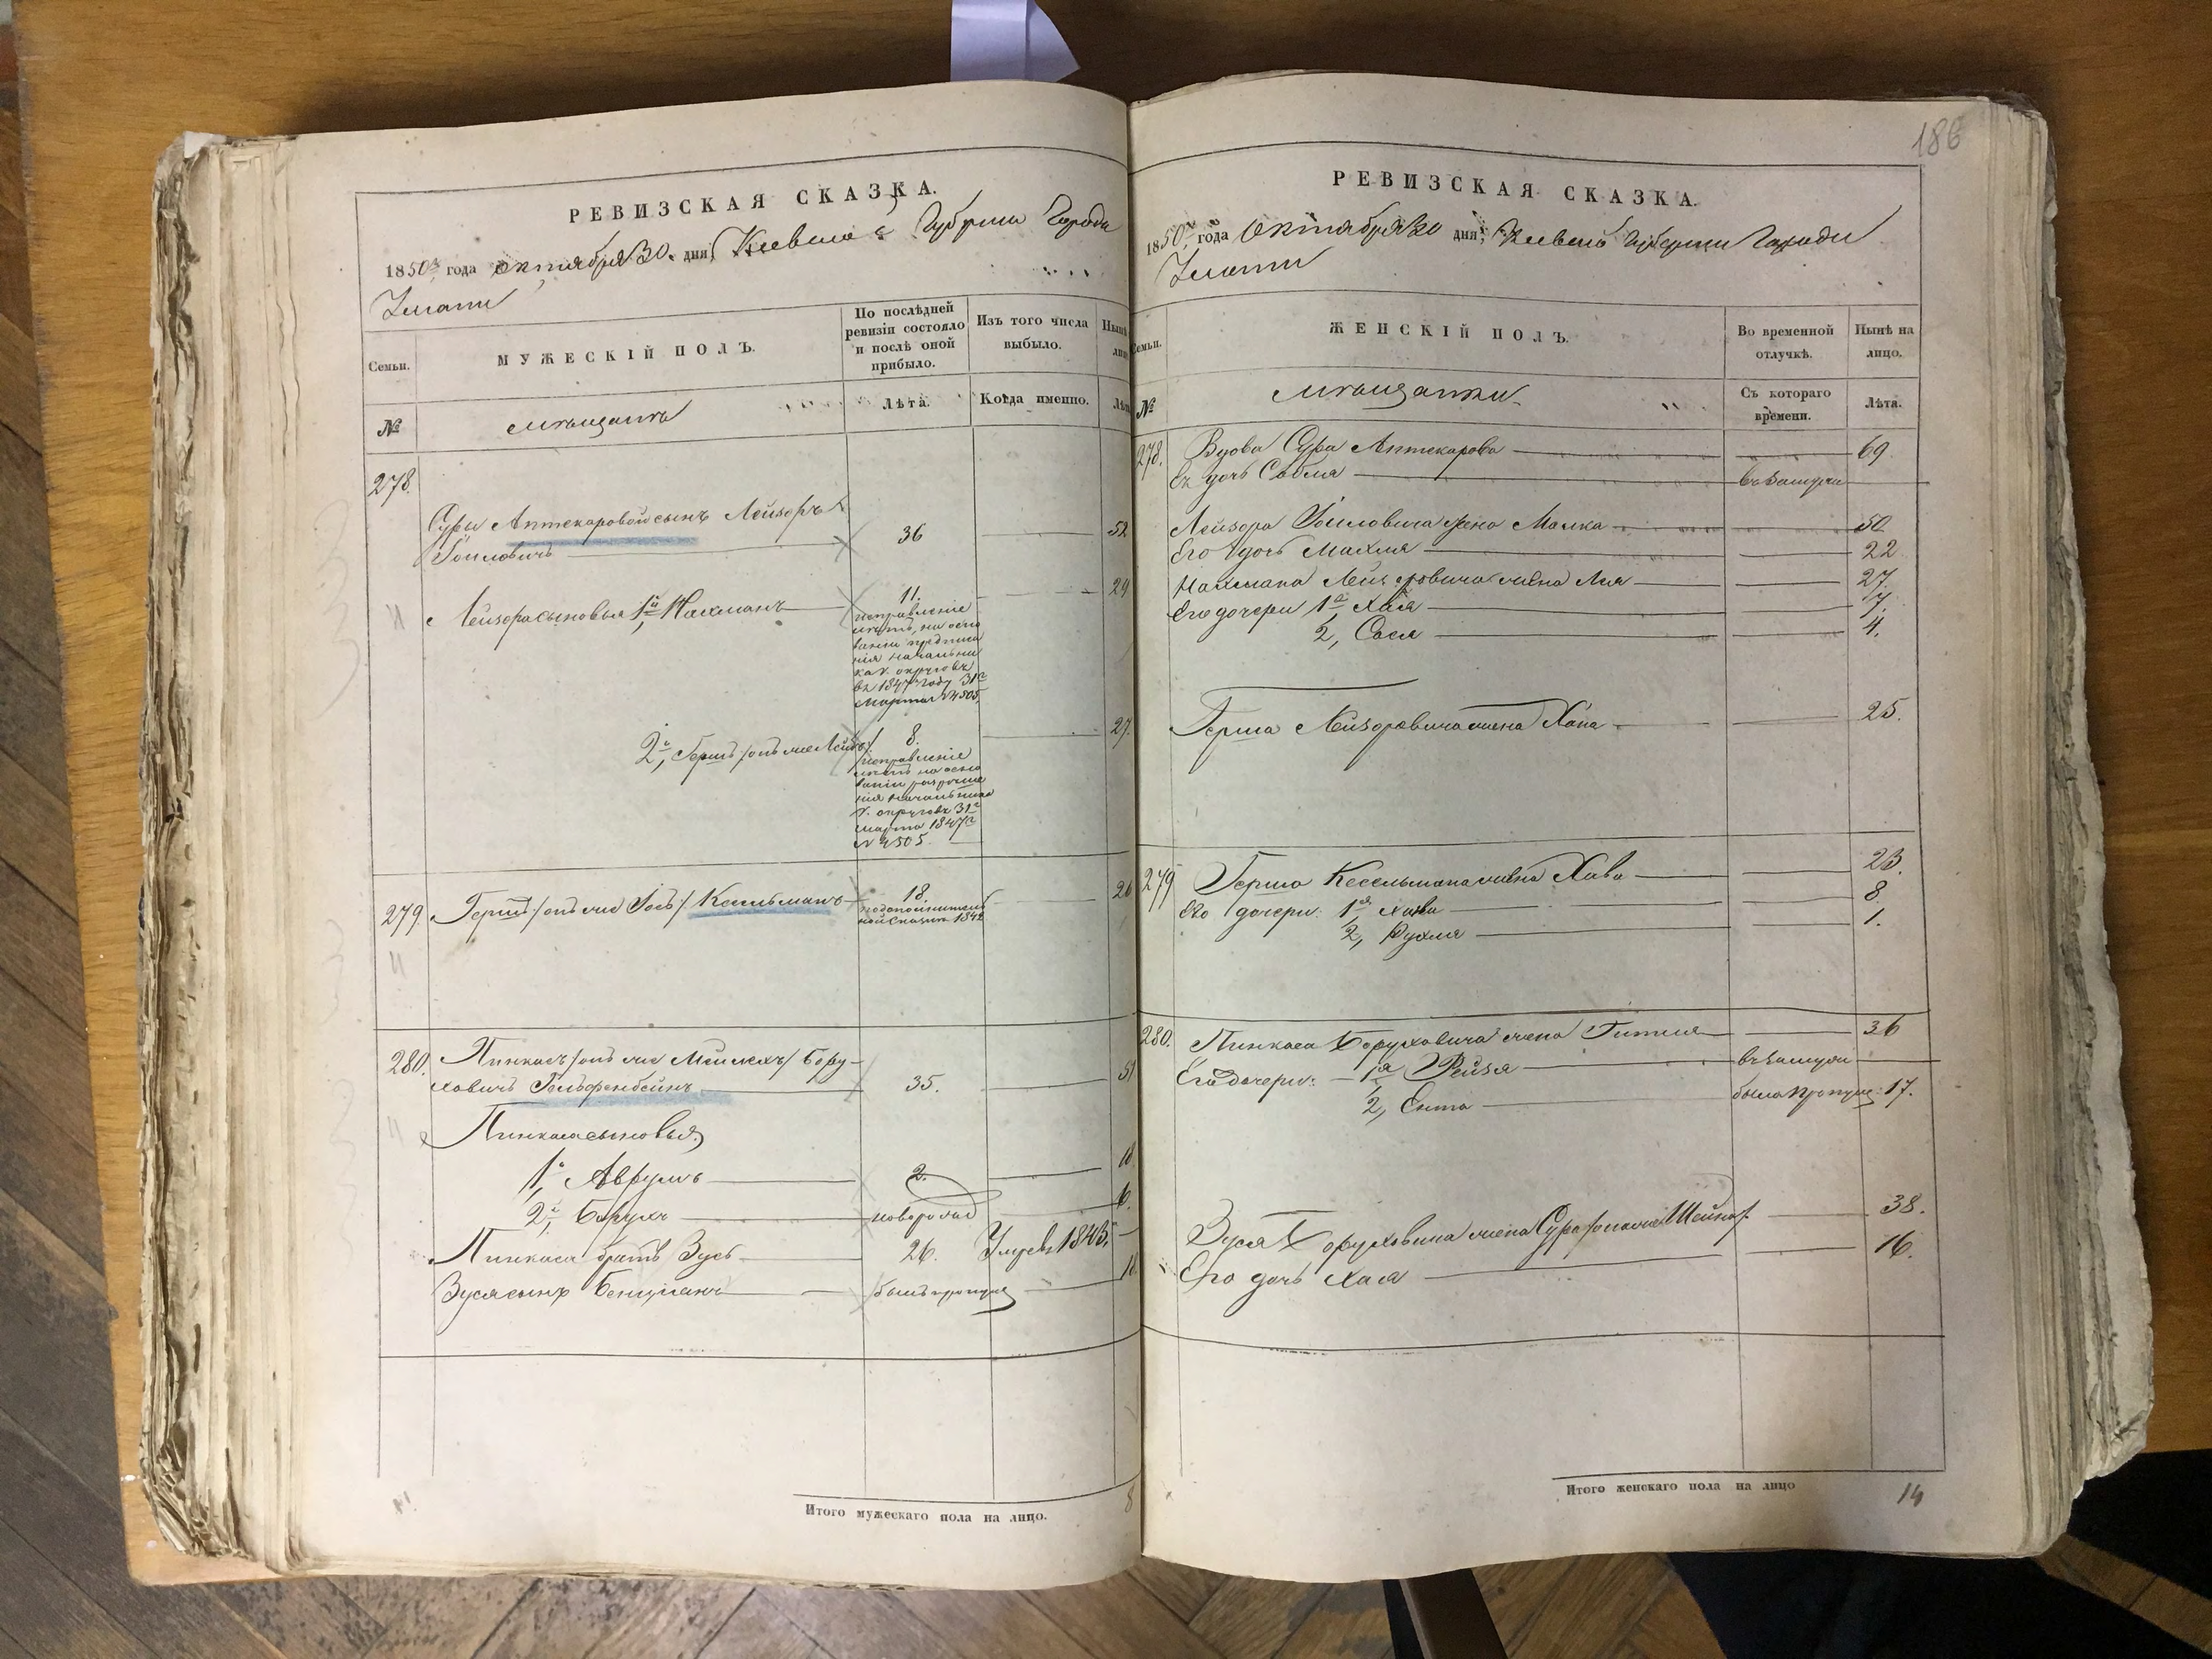 РЕВИЗСКАЯ СКАЗКА.
1850 года октября 30. дня, Киевской Губернии Города
Умани
Семьи.
МУЖЕСКІЙ ПОЛЪ.
По послѣдней ревизіи состояло и послѣ оной прибыло.
Изъ того числа выбыло.
№
мѣщанъ
Лѣта.
Когда именно.
278.
Суры Аптекаровой сынъ Лейзоръ
Іоиловичъ 36 52
Лейзора сыновья 1й Нахманъ 11. 29
исправленіе
лѣтъ, на осно
ваніи предписа
нія начальни
ка V. округовъ
въ 1847 году 31го
марта № 4505
2й, Гершъ /онъ же Лейбъ/ 8. 27.
исправленіе
лѣтъ на осно
ваніи
нія начальника
V. округовъ 31го
марта 1847го
№ 4505.
279. Гершъ /онъ же Іосъ/ Кесельманъ 18. 26
по дополнитель
ной сказкѣ 1842
280. Пинкасъ /онъ же Мейлехъ/ Бору-
ховичъ Гельфенбейнъ 35. 51
Пинкаса сыновья
1й, Аврумъ 2.
2й, Борухъ новорожд
Пинкаса братъ Зусь 26. Умре въ 1843.
Зуся сынъ Бенціанъ былъ пропущ
Итого мужескаго пола на лицо. 8
186
РЕВИЗСКАЯ СКАЗКА.
1850 года октября 30 дня, Киевской Губернии Города
Умани
Семьи.
ЖЕНСКІЙ ПОЛЪ.
Во временной отлучкѣ.
Нынѣ на лицо.
№
мѣщанки
Съ котораго времени.
Лѣта.
278. Вдова Сура Аптекарова 69.
Ея дочь Собля въ замужи
Лейзора Іоиловича жена Малка 50
Его дочь Махля 22
Нахмана Лейзоровича жена Лея 27.
Его дочери 1я Хая 7.
2, Сося 4.
Герша Лейзоровича жена Хана 25.
279 Герша Кесельмана жена Хава 23.
Его дочери: 1я, 8.
2, Рухля 1.
280. Пинкаса Боруховича жена Гитля 36
Его дочери: 1я Рейзя въ замужи
2, Ента была пропущ: 17.
Зуся Боруховича жена Сура /она же Шейна/ 38.
Его дочь Хая 16.
Итого женскаго пола на лицо 14